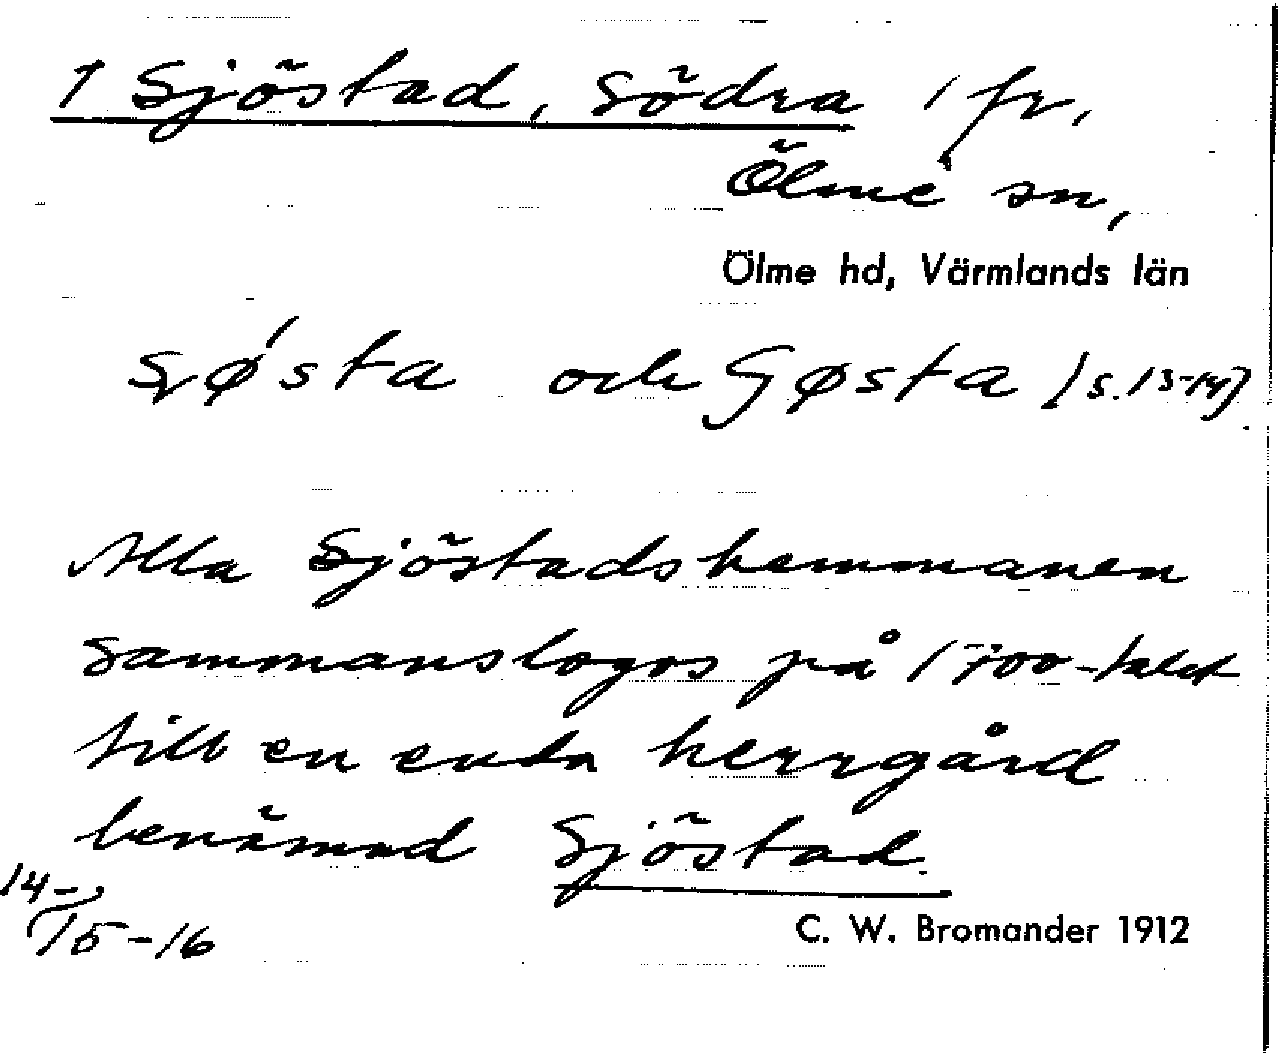 1 Sjöstad, Södra 1 fr.
Ölme sn,
Ölme hd, Värmlands län
sjø´sta och Jøsta (s. 13-14)
Alla Sjöstadshemmanen
sammanslogos på 1700-talet
till en enda herrgård
benämnd Sjöstad.
14-
15-16
C. W. Bromander 1912